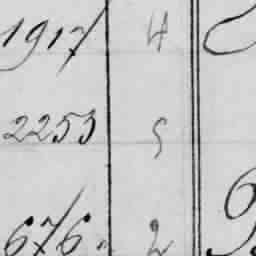 1917 4
2253 5
676 " 2